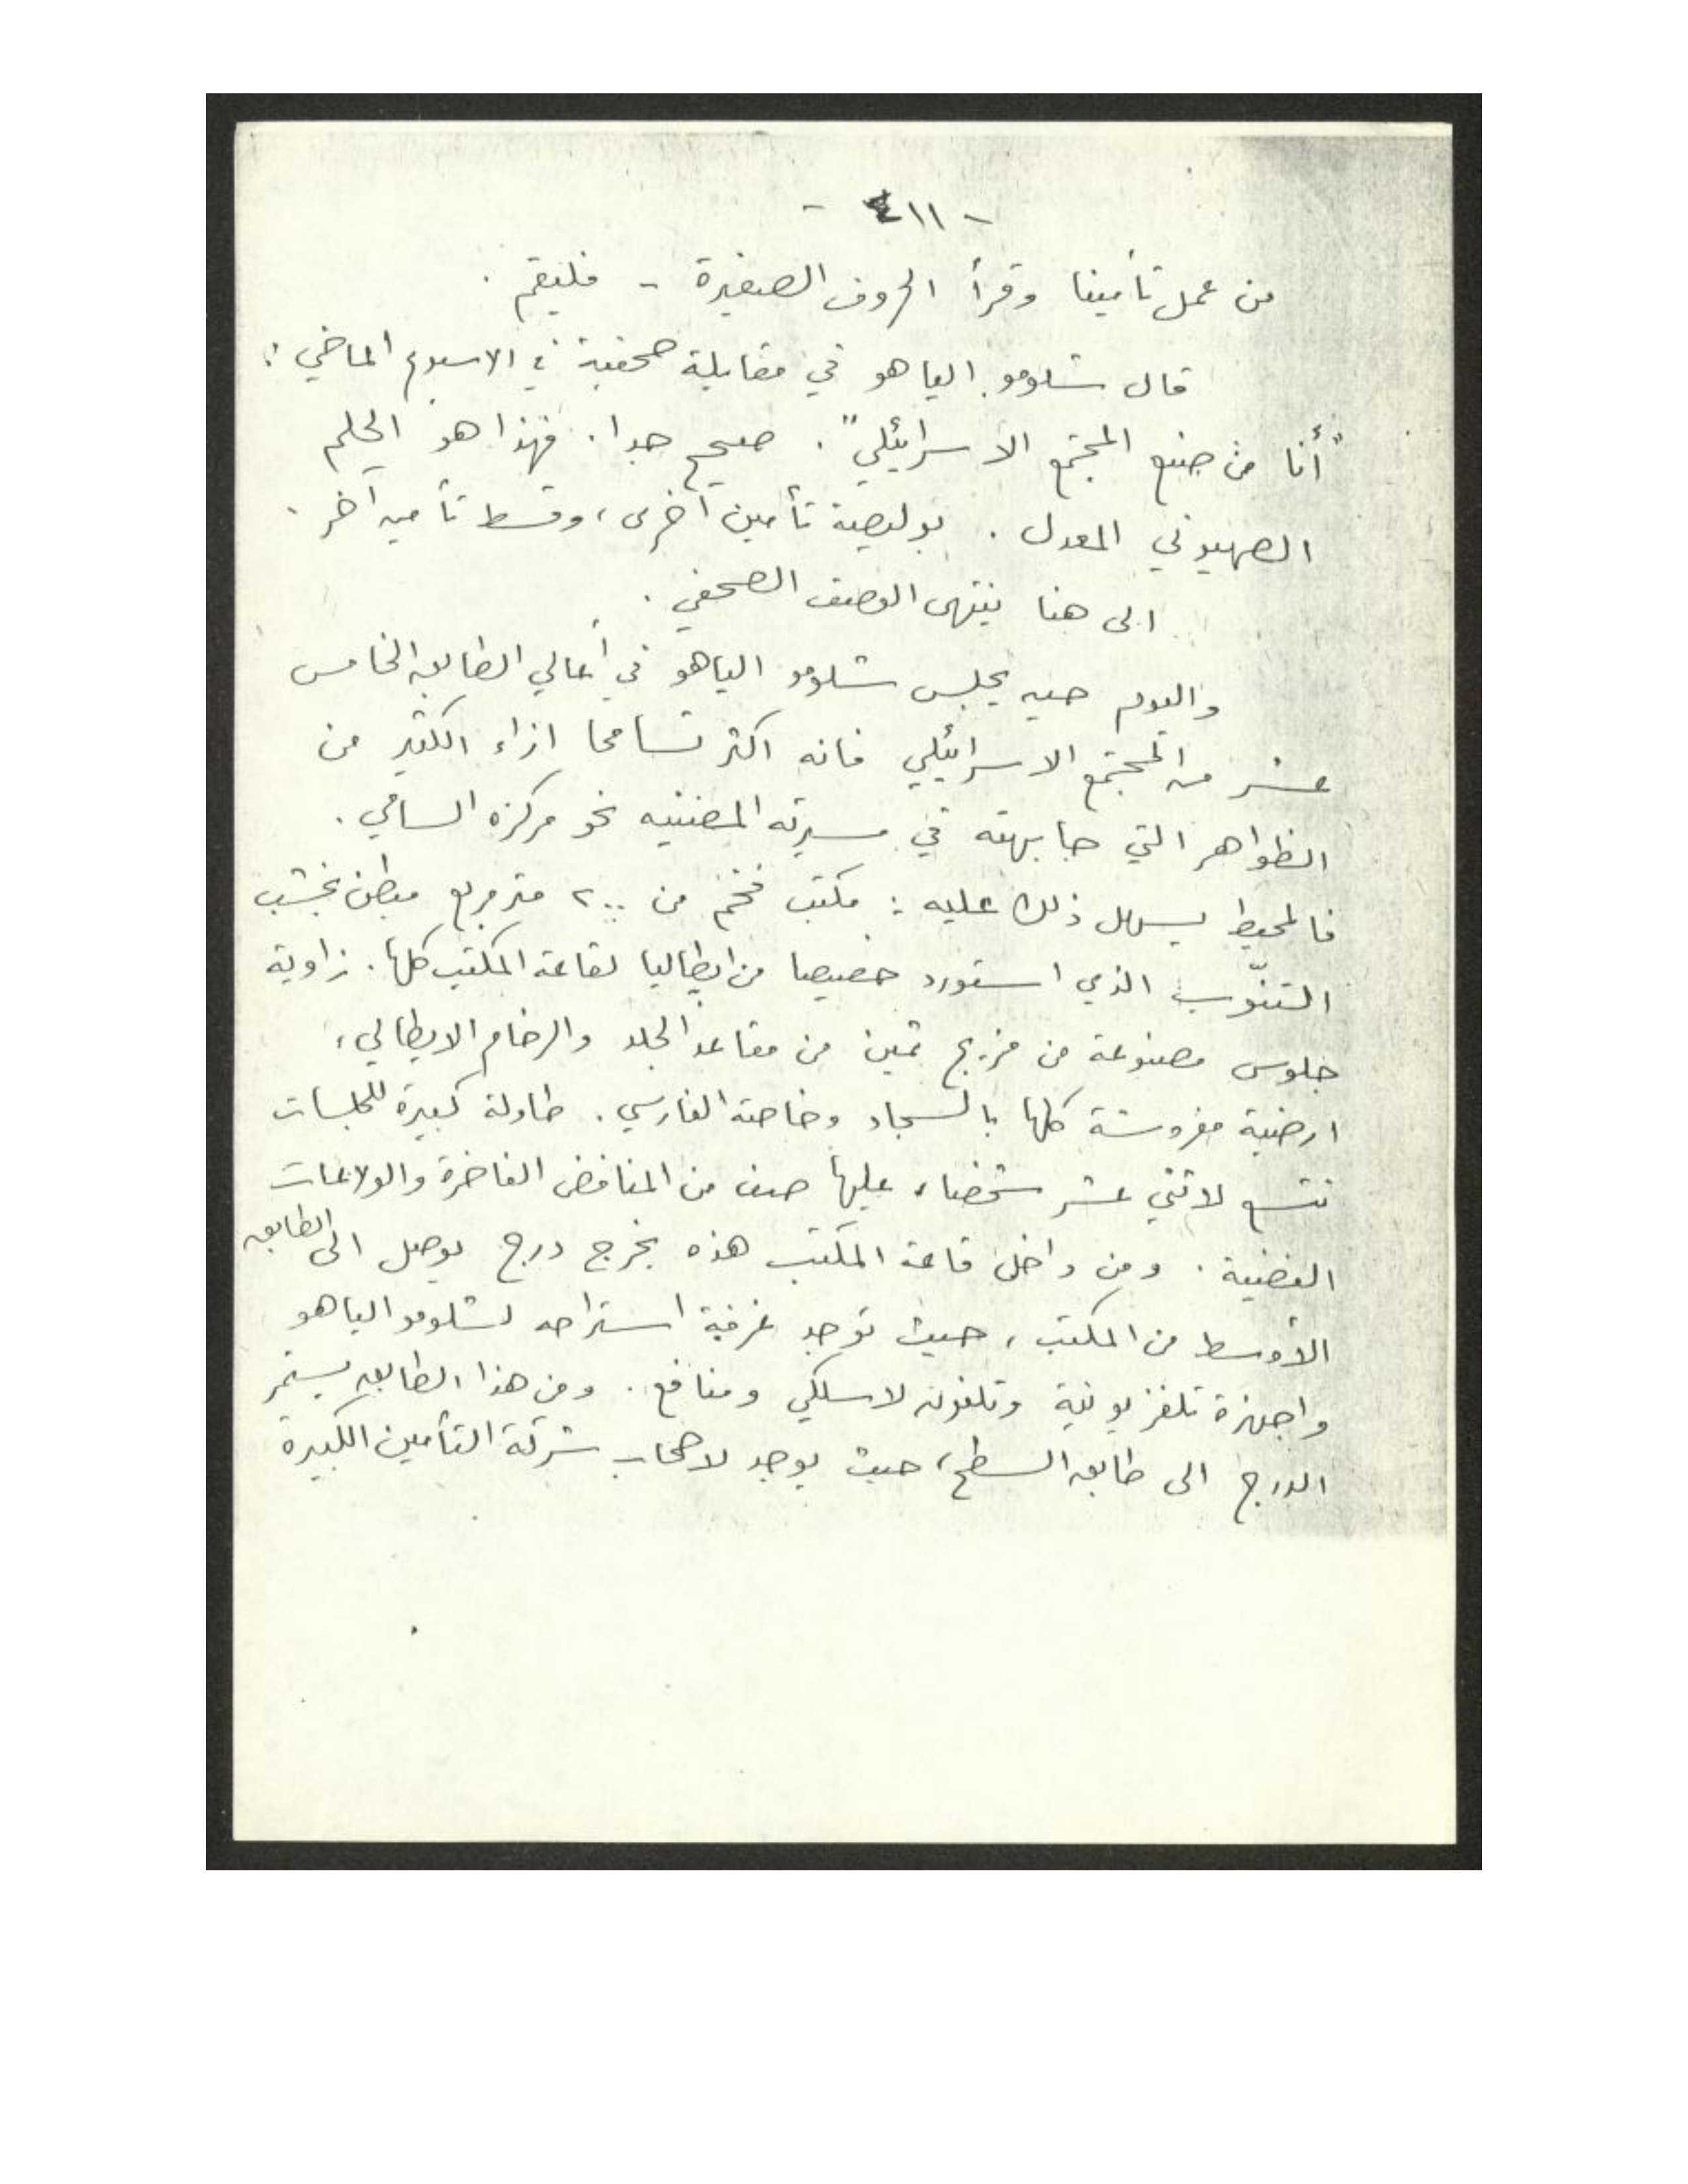 - ٤١١ -
من عمل تأمينا وقرأ الحروف الصغيرة - فليقم .
قال شلومو الياهو في مقابلة صحفية في الاسبوع الماضي :
"أنا من صنع المجتمع الاسرائيلي" . صحيح جدا . فهذا هو الحلم
الصهيوني المعدل . بوليصة تأمين أخرى ، وقسط تأمين آخر .
الى هنا ينتهى الوصف الصحفي .
واليوم حين يجلس شلومو الياهو في أعالي الطابق الخامس
عشر من المجتمع الاسرائيلي فانه اكثر تسامحا ازاء الكثير من
الظواهر التي جابهته في مسيرته المضنيه نحو مركزه السامي .
فالمحيط يسهل ذلك عليه : مكتب فخم من ٢٠٠ متر مربع مبطن بخشب
التنّوب الذي استورد خصيصا من ايطاليا لقاعة المكتب كلها . زاوية
جلوس مصنوعة من مزيج ثمين من مقاعد الجلد والرخام الايطالي ،
ارضية مفروشة كلها بالسجاد وخاصة الفارسي . طاولة كبيرة للجلسات
تتسع لاثني عشر شخصا ، عليها صف من المنافض الفاخرة والولاعات
الفضية . ومن داخل قاعة المكتب هذه يخرج درج يوصل الى الطابق
الأوسط من المكتب ، حيث توجد غرفة استراحه لشلومو الياهو
واجهزة تلفزيونية وتلفون لاسلكي ومنافع . ومن هذا الطابق يستمر
الدرج الى طابق السطح ، حيث يوجد لاصحاب شركة التأمين الكبيرة